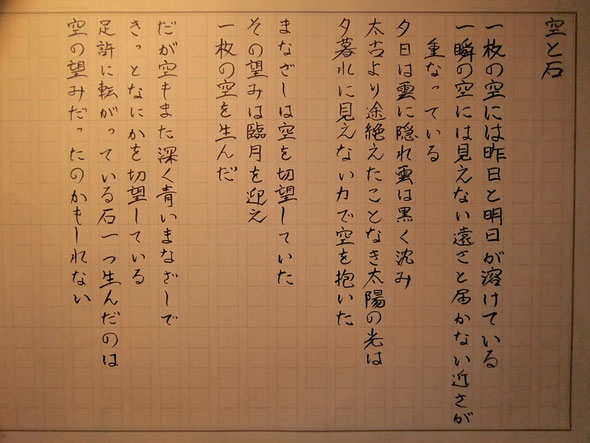 空と石
一枚の空には昨日と明日が溶けている
一瞬の空には見えない遠さと届かない近さが
重なっている
夕日は雲に隠れ雲は黒く沈み
太古より途絶えたことなき太陽の光は
夕暮れに見えない力で空を抱いた
まなざしは空を切望していた
その望みは臨月を迎え
一枚の空を生んだ
だが空もまた深く青いまなざしで
きっとなにかを切望している
足許に転がっている石一つ生んだのは
空の望みだったのかもしれない